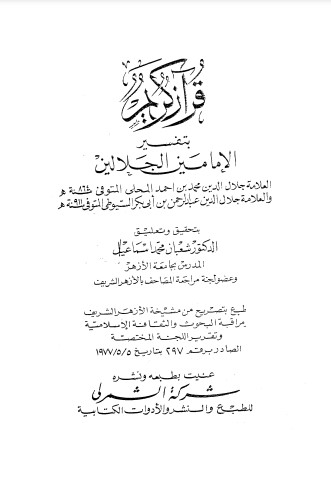 قرآن كريم
بتفسير
الإمامين الجلالين
العلامة جلال الدين محمد بن أحمد المحلى المتوفى ٨٦٤ سنة هـ
والعلامة جلال الدين عبد الرحمن بن أبى بكر السيوطى المتوفى ٩١١ سنة هـ
بتحقيق وتعليق
الدكتور شعبان محمد إسماعيل
المدرس بجامعة الأزهر
وعضو لجنة مراجعة المصاحف بالأزهر الشريف
طبع بتصريح من مشيخة الأزهر الشريف
مراقبة البحوث والثقافة الإسلامية
وتقرير اللجنة المختصة
الصادر برقم ٢٩٧ بتاريخ ١٩٧٧/٥/٥
عنيت بطبعه ونشره
شركة الشمرلى
للطبع والنشر والأدوات الكتابية